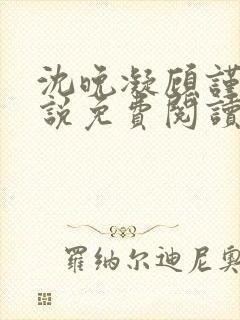 沈晚凝顧謹
說免費閱讀
羅納尔迪尼奧